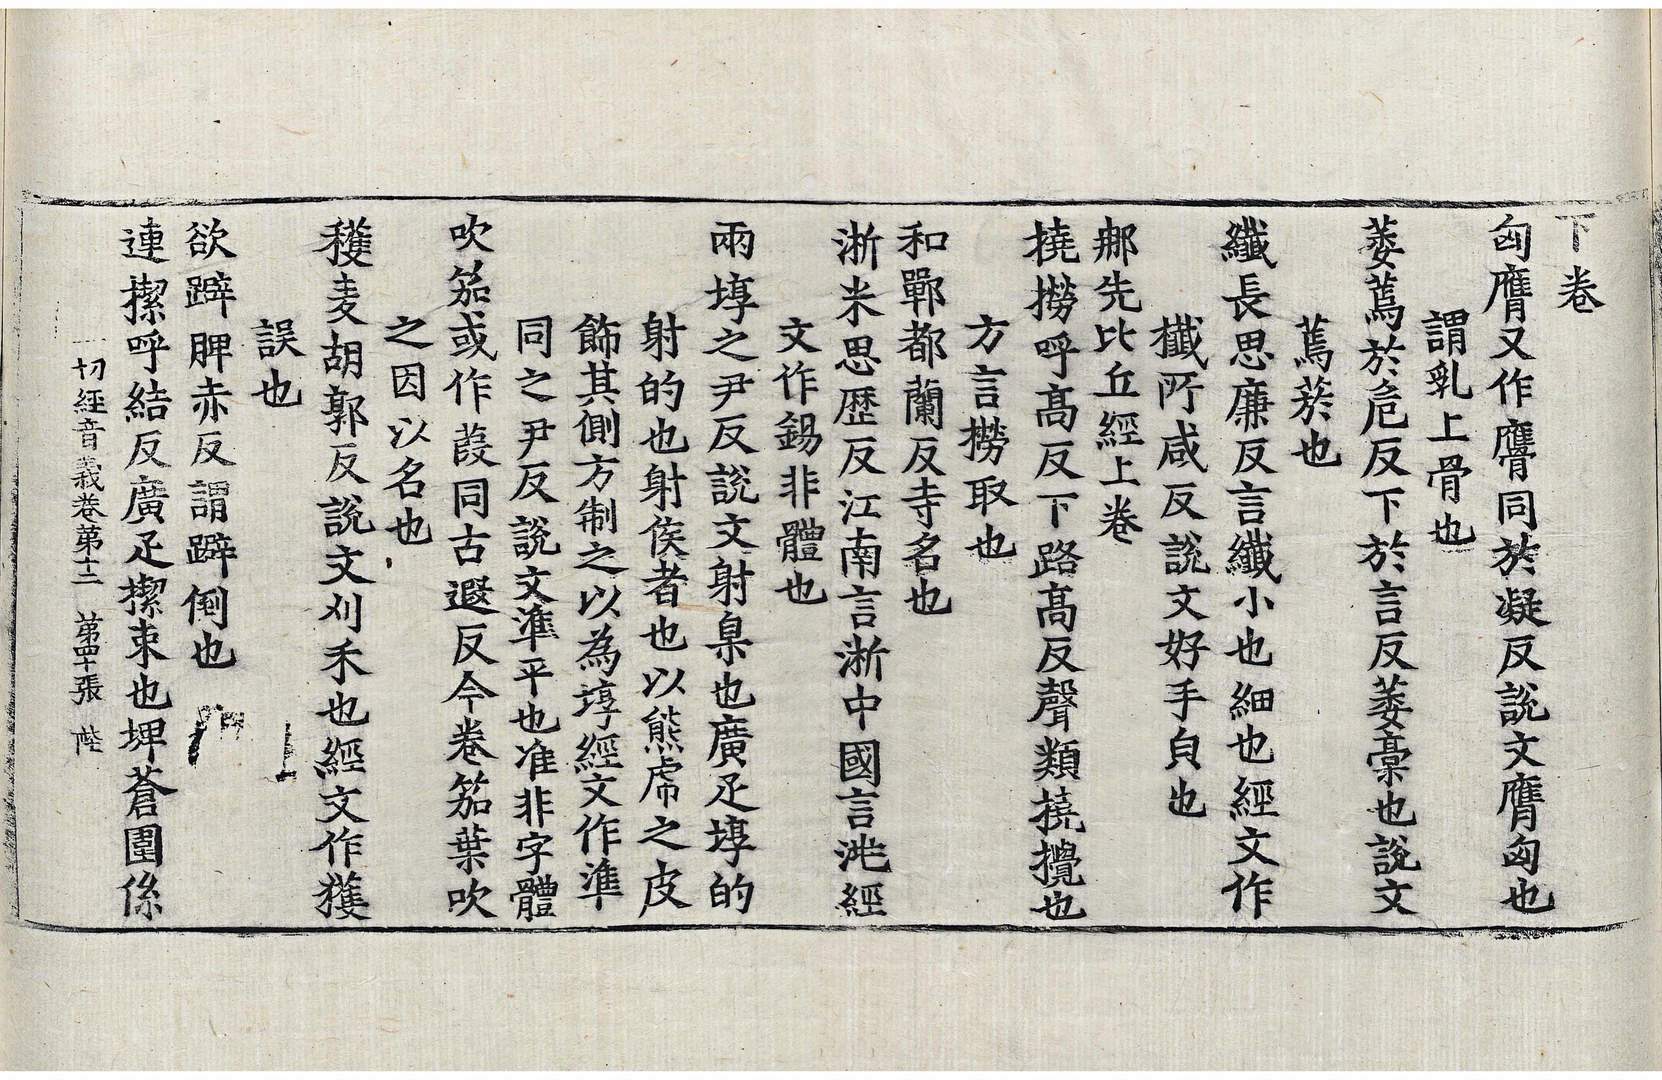 下卷
匈膺又作臆同於凝反說文膺匈也
謂乳上骨也
萎蔫於危反下於言反萎槀也說文
蔫菸也
纖長思廉反言纖小也細也經文作
櫼所咸反說文好手皃也
郍先比丘經上卷
撓撈呼髙反下路髙反聲類撓攪也
方言撈取也
和鄲都蘭反寺名也
淅米思歷反江南言淅中國言洮經
文作錫非體也
兩埻之尹反說文射臬也廣疋埻的
射的也射侯者也以熊虎之皮
飾其側方制之以為埻經文作準
同之尹反說文準平也准非字體
吹笳或作葭同古遐反今卷笳葉吹
之因以名也
穫麦胡郭反說文刈禾也經文作獲
誤也
欲躃脾赤反謂躃倒也
連㩢呼結反廣疋㩢束也埤蒼圍係
一切經音義卷第十二 第四十張 陛